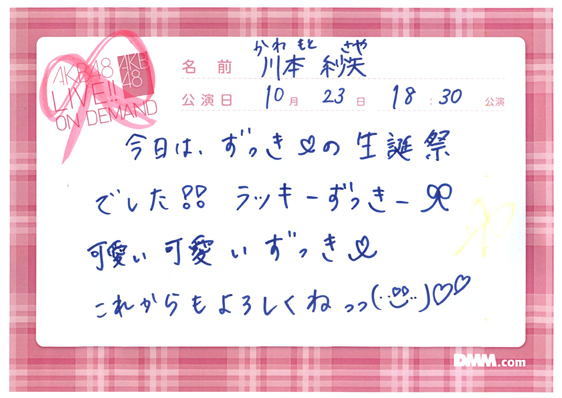 AKB48
AKB
48
LIVE!!
ON DEMAND
かわもと さや
名前 川本 紗矢
公演日 10月 23日 18:30 公演
今日は、ずっき♡の生誕祭
でした!! ラッキーずっきー
可愛い可愛いずっき♡
これからもよろしくねっっ(¨)♡♡
DMM.com